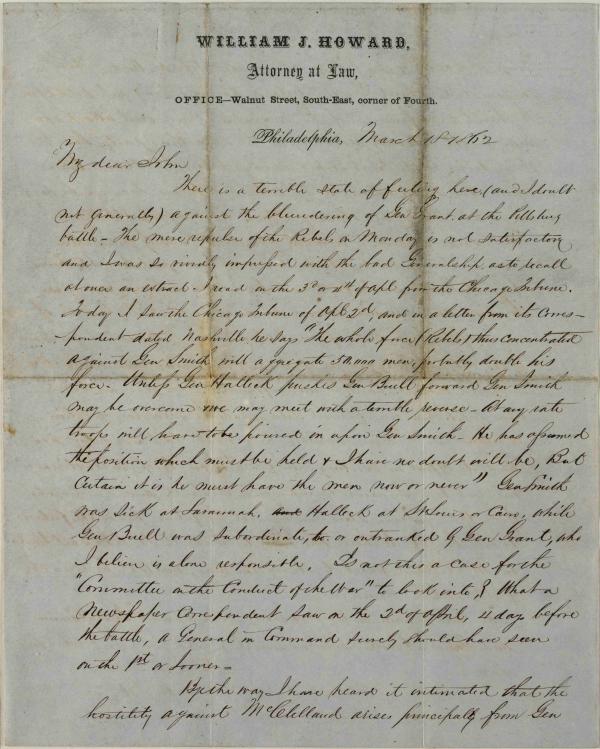 WILLIAM J. HOWARD,
Attorney at Law,
OFFICE—Walnut Street, South-East, corner of Fourth.
Philadelphia, March 18 1862
My dear John
There is a terrible state of feeling here, (and I doubt
not generally) against the blundering of Gen Grant, at the Pittsburg
battle - The mere repulse of the Rebels on Monday is not satisfactory
and I was so vividly impressed with the bad Generalship, as to recall
at once an extract I read on the 3d or 4th of Apl from the Chicago Tribune.
To day I saw the Chicago Tribune of Apl 2d, and in a letter from its corres-
pondent dated Nashville, he says "The whole force (Rebels) thus concentrated
against Gen Smith will aggregate 50,000 men, probably double his
force - Unless Gen Halleck pushes Gen Buell forward Gen Smith
may be overcome & we may meet with a terrible reverse - At any rate
troops will have to be poured in upon Gen Smith - He has assumed
the position which must be held & I have no doubt will be, But
Certain it is he must have the men now or never" Gen Smith
was sick at Savannah, and Halleck at St Louis or Cairo, while
Gen Buell was subordinate, to, or outranked by Gen Grant, who
I believe is alone responsible. Is not this a case for the
"Committee on the Conduct of the War" to look into? What a
Newspaper Correspondent saw on the 2d of April, 4 days before
the battle, a General in Command surely should have seen
on the 1st or sooner -
By the way, I have heard it intimated that the
hostility against McClelland arises principally from Gen